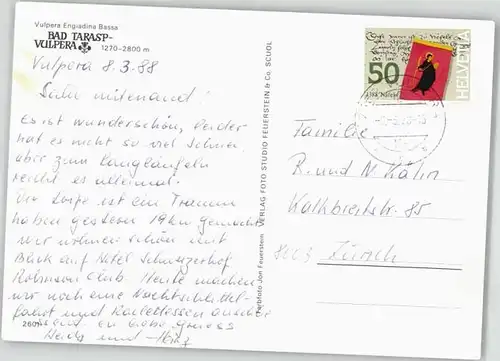 Vulpera Engiadina Bassa
BAD TARASP-
VULPERA 1270-2800 m
Vulpera 8.3.88
Salü mitenand!
Es ist wunderschön, leider
hat es nicht so viel Schnee,
aber zum Langläufeln
reicht es allemal.
Die Loipe ist ein Traum
haben gestern 19 km gemacht
Wir wohnen schön mit
Blick auf Hotel Schweizerhof
Robinson Club. Heute machen
wir noch eine Nachtschlittel-
fahrt und Raclettessen
En liebe Gruess
und Heinz
2601
Farbfoto Jon Feuerstein VERLAG FOTO STUDIO FEUERSTEIN & Co. SCUOL
50
HELVETIA
Familie
R. und N. Kälin
Kalkbreitestr. 85
8003 Zürich